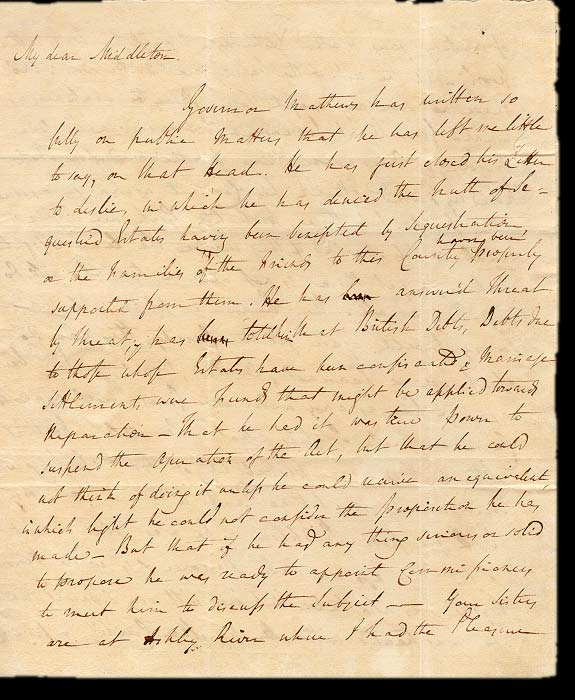 My dear Middleton.
Governor Mathews has written so
fully on public Matters that he has left me little
to say, on that Head. He has just closed his Letter
to Leslie, in which he has denied the truth of Se=
questred Estates having been benefited by Sequestration,
or the Families of the Friends to this Country having been properly
supported from them. He has answer'd Threat
by threat, & has told him that British Debts, Debts due
to those whose Estates have been confiscated, & Marriage
Settlements were Funds that might be applied towards
Reparation – that he had it was true Power to
suspend the Operation of the Act, but that he could
not think of doing it unless he could receive an equivalent
in which light he could not consider the Proposition he has
made – But that if he had any thing serious or solid
to propose he was ready to appoint Commissioners
to meet him to discuss the Subject — Your Sisters
are at Ashley River where I had the Pleasure